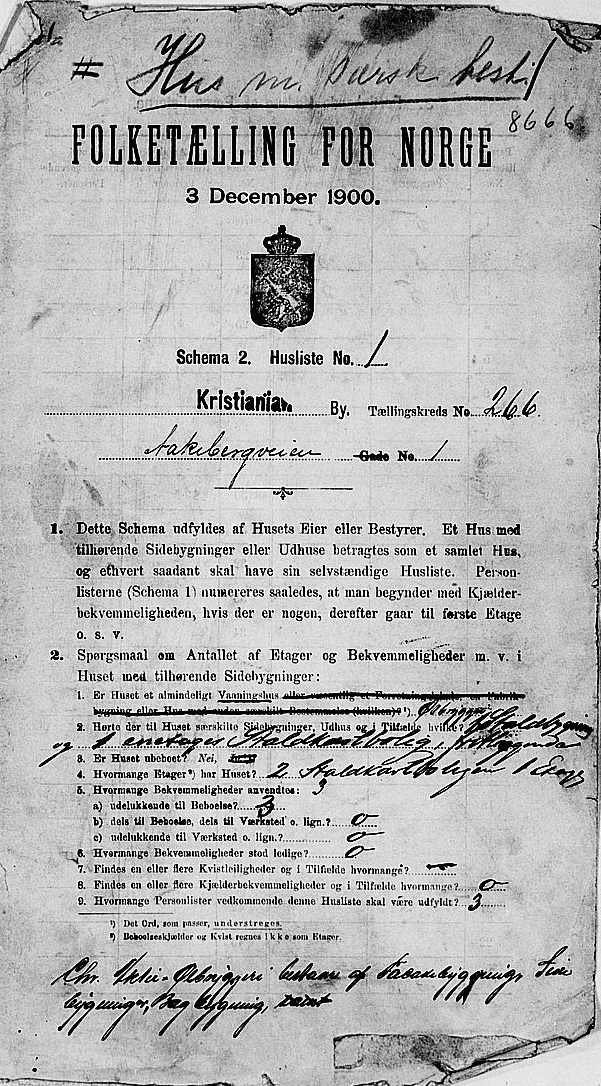 # Hus m. Særsk. best.
8666
FOLKETÆLLING FOR NORGE
3 December 1900.
Schema 2. Husliste No. 1
Kristiania By. Tællingskreds No. 266.
Aakebergveien Gade No. 1
1. Dette Schema udfyldes af Husets Eier eller Bestyrer. Et Hus med
tilhørende Sidebygninger eller Udhuse betragtes som et samlet Hus,
og ethvert saadant skal have sin selvstændige Husliste. Person-
listerne (Schema 1) numereres saaledes, at man begynder med Kjælder-
bekvemmeligheden, hvis der er nogen, derefter gaar til første Etage
o. s. v.
2. Spørgsmaal om Antallet af Etager og Bekvemmeligheder m. v. i
Huset med tilhørende Sidebygninger:
1. Er Huset et almindeligt Vaaningshus eller væsentlig et Forretningslokale, en Fabrik-
bygning eller Hus med anden særskilt Bestemmelse (hvilken)? ¹) Ølbryggeri
2. Hørte der til Huset særskilte Sidebygninger, Udhus og i Tilfælde hvilke? Staldbygning
og 1 enetages Staldkarlbolig,
3. Er Huset ubeboet? Nei,
4. Hvormange Etager²) har Huset? 2 Staldkarlboligen 1 Etage
5. Hvormange Bekvemmeligheder anvendtes: 3
a) udelukkende til Beboelse? 3
b) dels til Beboelse, dels til Værksted o. lign.? 0
c) udelukkende til Værksted o. lign.? 0
6. Hvormange Bekvemmeligheder stod ledige? 0
7. Findes en eller flere Kvistleiligheder og i Tilfælde hvormange? —
8. Findes en eller flere Kjælderbekvemmeligheder og i Tilfælde hvormange? 0
9. Hvormange Personlister vedkommende denne Husliste skal være udfyldt? 3
¹) Det Ord, som passer, understreges.
²) Beboelseskjælder og Kvist regnes ikke som Etager.
Chr. Aktie-Ølbryggeri bestaar af Facadebyggning, Side
bygninger, Bag bygning, samt